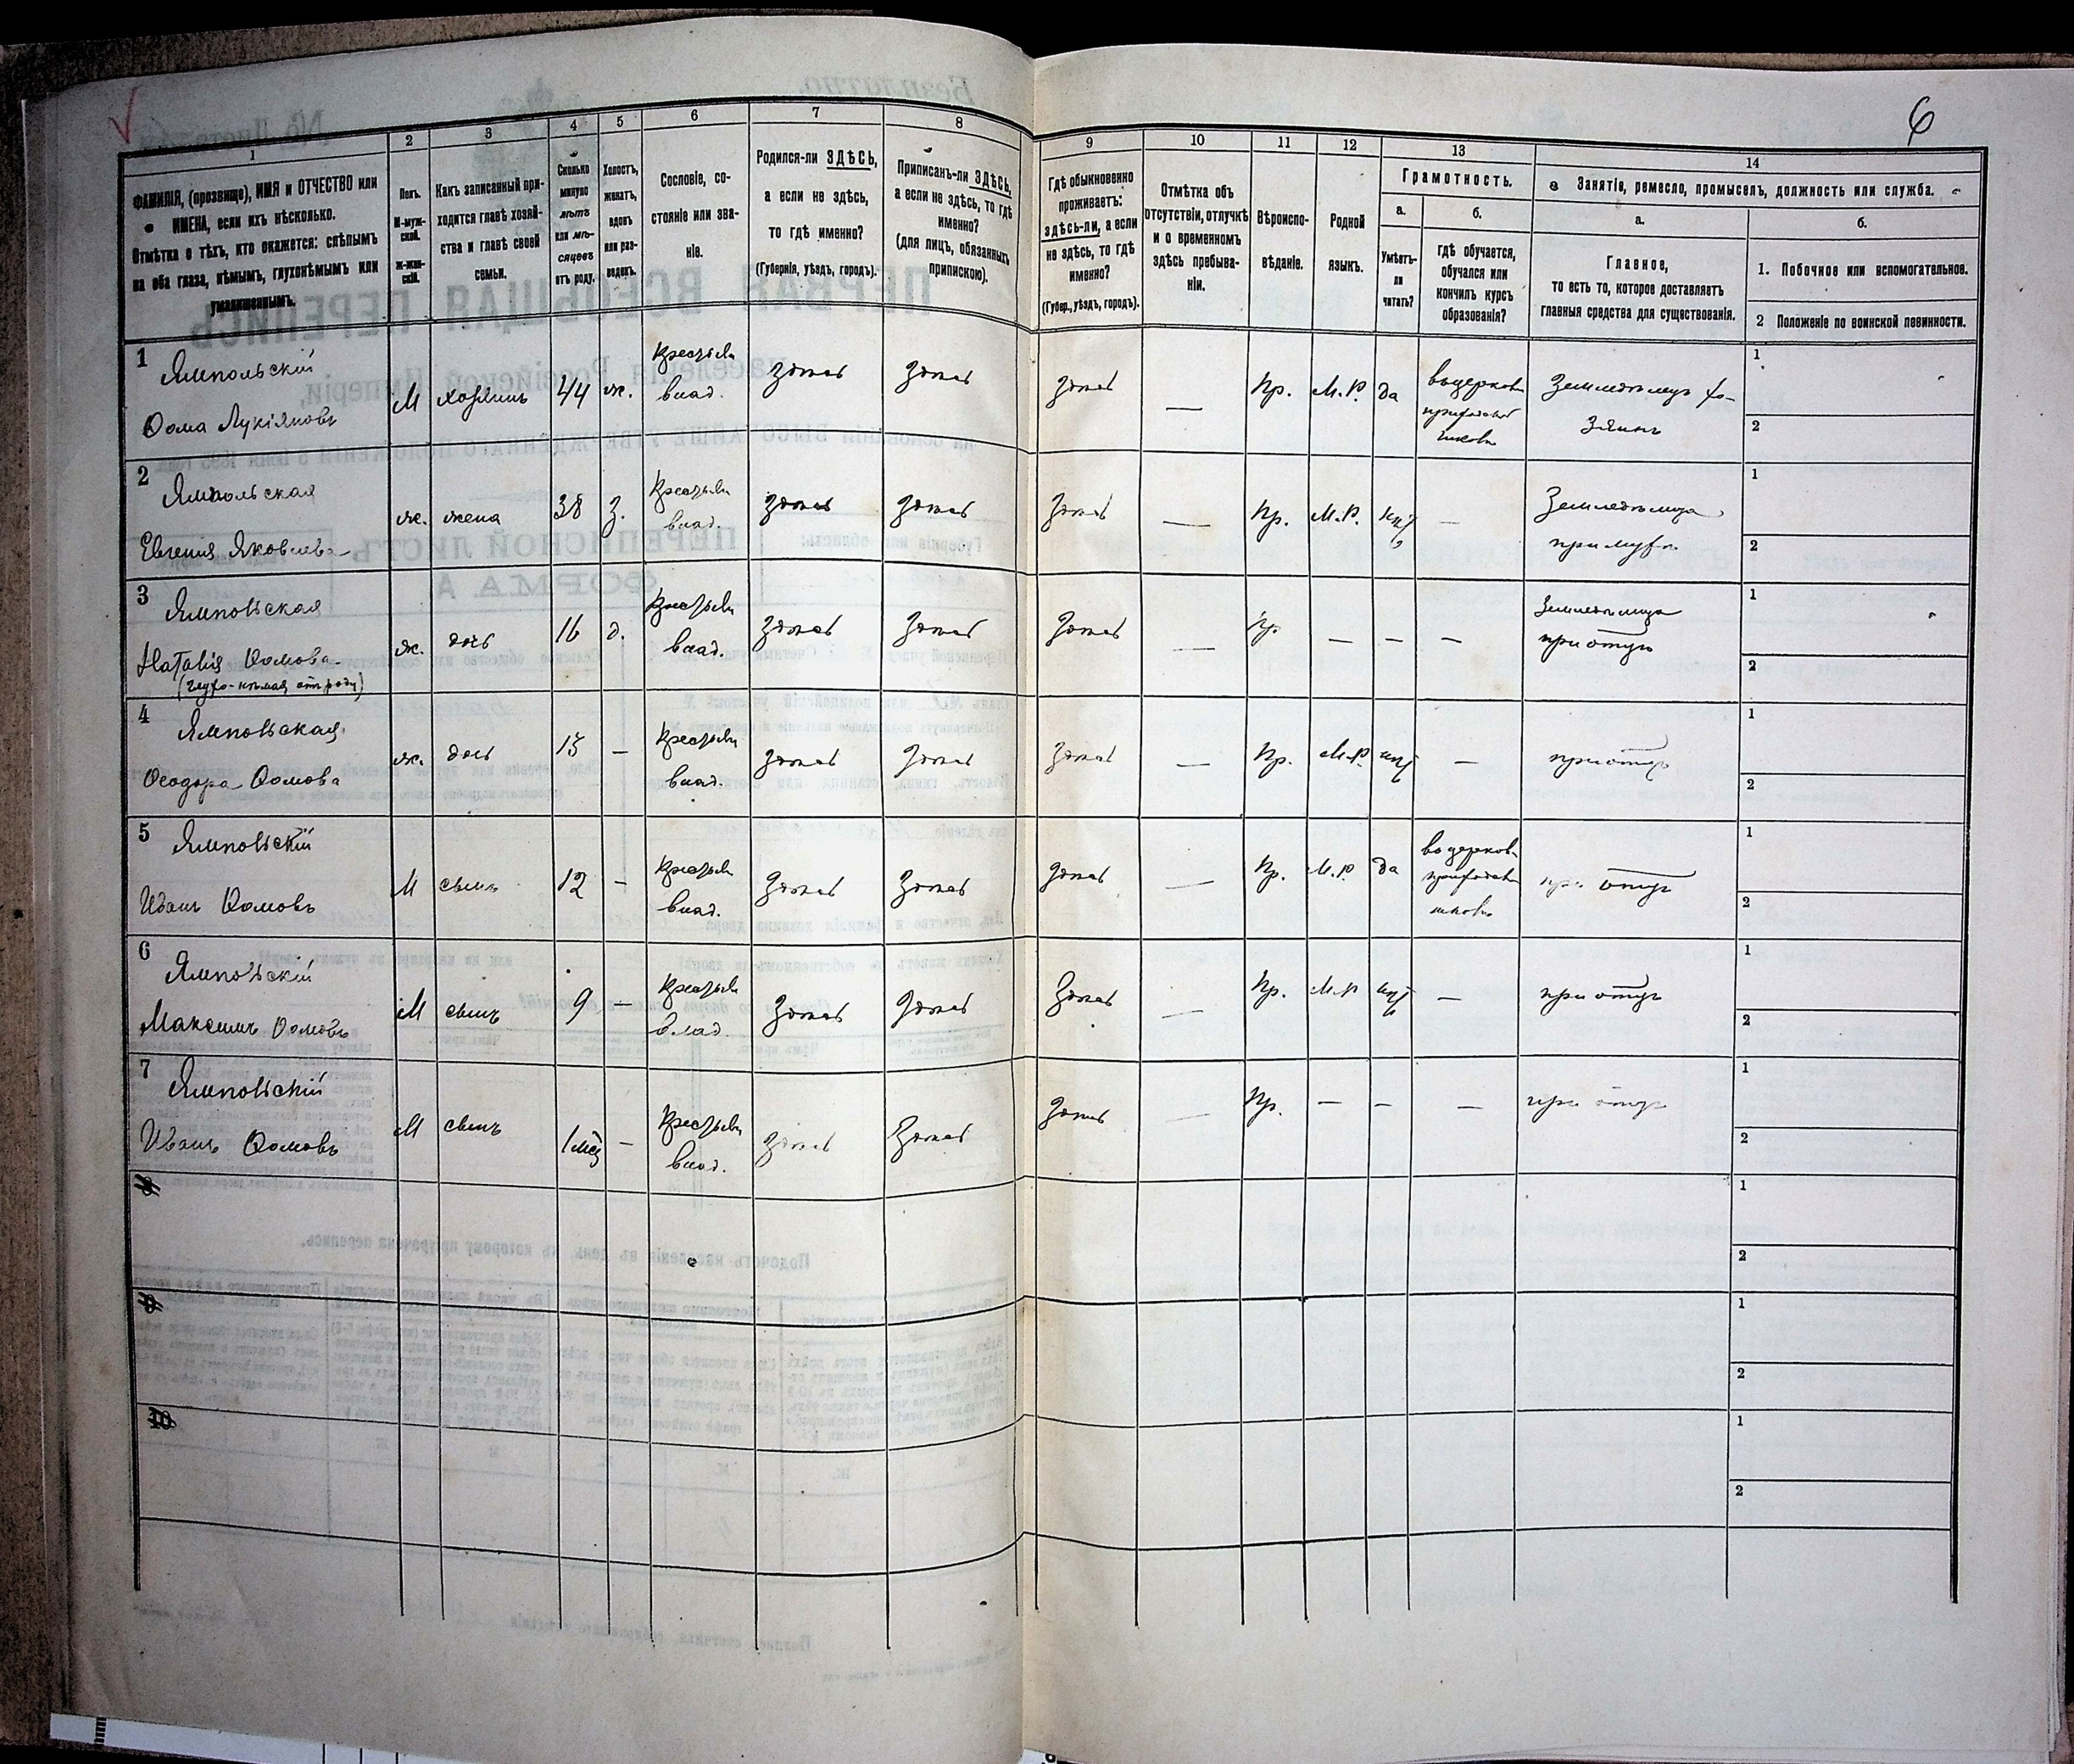 6
1
2
3
4
5
6
7
8
9
10
11
12
13
14
ФАМИЛІЯ, (прозвище), ИМЯ и ОТЧЕСТВО или
ИМЕНА, если ихъ нѣсколько.
Отмѣтка о тѣхъ, кто окажется: слѣпымъ
на оба глаза, нѣмымъ, глухонѣмымъ или
умалишеннымъ.
Полъ.
М-муж-
ской.
Ж-жен-
скій.
Какъ записанный при-
ходится главѣ хозяй-
ства и главѣ своей
семьи.
Сколько
минуло
лѣтъ
или мѣ-
сяцевъ
отъ роду.
Холостъ,
женатъ,
вдовъ
или раз-
веденъ.
Сословіе, со-
стояніе или зва-
ніе.
Родился-ли ЗДѢСЬ,
а если не здѣсь,
то гдѣ именно?
(Губернія, уѣздъ, городъ).
Приписанъ-ли ЗДѢСЬ,
а если не здѣсь, то гдѣ
именно?
(для лицъ, обязанныхъ
припискою).
Гдѣ обыкновенно
проживаетъ:
здѣсь-ли, а если
не здѣсь, то гдѣ
именно?
(Губер., уѣздъ, городъ).
Отмѣтка объ
отсутствіи, отлучкѣ
и о временномъ
здѣсь пребыва-
ніи.
Вѣроиспо-
вѣданіе.
Родной
языкъ.
Грамотность.
а.
Умѣетъ-
ли
читать?
б.
гдѣ обучается,
обучался или
кончилъ курсъ
образованія?
Занятіе, ремесло, промыселъ, должность или служба.
а.
Главное,
то есть то, которое доставляетъ
главныя средства для существованія.
б.
1. Побочное или вспомогательное.
2 Положеніе по воинской повинности.
1
Ямпольскій
Ѳома Лукіяновъ
М
хозяинъ
44
ж.
влад.
здѣсь
здѣсь
здѣсь
—
Пр.
М.Р.
да
1
2
2
Ямпольская
Евгенія Яковлева
ж.
жена
38
з.
влад.
здѣсь
здѣсь
здѣсь
—
Пр.
М.Р.
нѣт
—
Земледѣлица
при мужѣ
1
2
3
Ямпольская
Наталія Ѳомова
(глухо-нѣмая отъ роду)
ж.
дочь
16
д.
влад.
здѣсь
здѣсь
здѣсь
—
Пр.
—
—
—
Земледѣлица
при отцѣ
1
2
4
Ямпольская
Ѳеодора Ѳомова
ж.
дочь
15
—
влад.
здѣсь
здѣсь
здѣсь
—
Пр.
М.Р.
нѣт
—
при отцѣ
1
2
5
Ямпольскій
Иванъ Ѳомовъ
М
сынъ
12
—
влад.
здѣсь
здѣсь
здѣсь
—
Пр.
М.Р
да
при отцѣ
1
2
6
Ямпольскій
Максимъ Ѳомовъ
М
сынъ
9
—
влад.
здѣсь
здѣсь
здѣсь
—
Пр.
М.Р
нѣт
—
при отцѣ
1
2
7
Ямпольскій
Иванъ Ѳомовъ
М
сынъ
1 мѣс
—
влад.
здѣсь
здѣсь
здѣсь
—
Пр.
—
—
—
при отцѣ
1
2
8
1
2
9
1
2
10
1
2